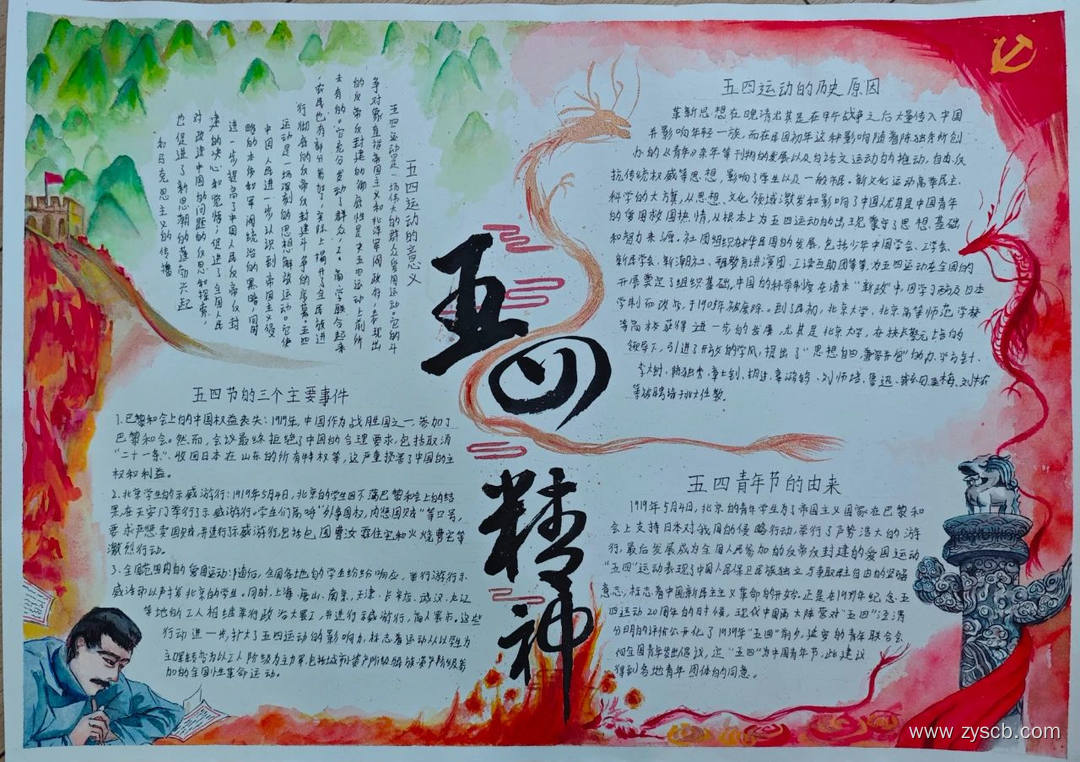 五四运动的意义
五四运动是一场伟大的群众爱国运动。它的斗
争对像直指帝国主义和北洋军阀政府，表现出
的反帝反封建的
去有的。它充分发动了群众，工、商、学联合起来
农民也有部分参加，实际上揭开了全民族进
行彻底的反帝反封建斗争的序幕。五四
运动是一场深刻的思想解放运动。它使
中国人民进一步认识到帝国主义侵
略的本质和军阀统治的黑暗，同时
进一步提高了中国人民反帝反封
建的决心和觉悟，促进了全国人民
对改造中国的问题的反思和探索，
也促进了新思潮的蓬勃兴起
和马克思主义的传播
五四精神
五四运动的历史原因
革新思想在晚清尤其是在甲午战争之后大量传入中国
并影响年轻一族，而在民国初年这种影响随着陈独秀所创
办的《青年》杂年等刊物的发展以及白话文运动的推动，自由反
抗传统权威等思想，影响了学生以及一般市民。新文化运动高举民主、
科学的大旗，从思想、文化领域激发和影响了中国尤其是中国青年
的爱国救国热情，从根本上为五四运动的出现奠定了思想基础
和智力来源。社团组织在中华民国的发展，包括少年中国学会、工学会、
新民学会、新潮社、平民教育讲演团、工读互助团等等，为五四运动在全国的
开展奠定了组织基础，中国的科举制度在清末"新政"中，因学习西方及日本
学制而改革，于1905年被废除。到了民初，北京大学，北京高等师范学校
等高校获得进一步的发展，尤其是北京大学，在校长蔡元培的
领导下，引进了开放的学风，提出了"思想自由，兼容并包"的办学方针，
李大钊、陈独秀、章士钊、胡适、辜鸿铭、刘师培、鲁迅、钱玄同、
等被聘请于北大任教。
五四节的三个主要事件
1.巴黎和会上的中国权益丧失：1919年，中国作为战胜国之一，参加了
巴黎和会。然而，会议最终拒绝了中国的合理要求，包括取消
"二十一条"、收回日本在山东的所有特权等，这严重损害了中国的主
权和利益。
2.北京学生的示威游行：1919年5月4日，北京的学生因不满巴黎和会上的结
果，在天安门举行了示威游行。学生们高呼"外争国权，内惩国贼"等口号，
要求严惩卖国贼，并进行示威游行，
激烈行动。
3.全国范围内的爱国运动：随后，全国各地的学生纷纷响应，举行游行示
威活动以声援北京的学生。同时，上海、唐山、南京、天津、长辛店、武汉、九江
等地的工人相继举行政治大罢工，并进行示威游行，商人罢市。这些
行动进一步扩大了五四运动的影响力，标志着运动从以学生为
主体转变为以工人阶级为主力军，包括城市小资产阶级、民族资产阶级参
加的全国性革命运动。
五四青年节的由来
1919年5月4日，北京的青年学生为了帝国主义国家在巴黎和
会上支持日本对我国的侵略行动，举行了声势浩大的游
行，最后发展成为全国人民参加的反帝反封建的爱国运动
"五四"运动表现了中国人民保卫民族独立与争取民主自由的坚强
意志，标志着中国新民主主义革命的开始。正是在1939年纪念五
四运动20周年的时候，现代中国两大阵营对"五四"泾渭
分明的评价公开化了。1939年"五四"前夕，延安的青年联合会
向全国青年发出倡议，定"五四"为中国青年节，此建议
得到各地青年团体的同意。
www.zyscb.com